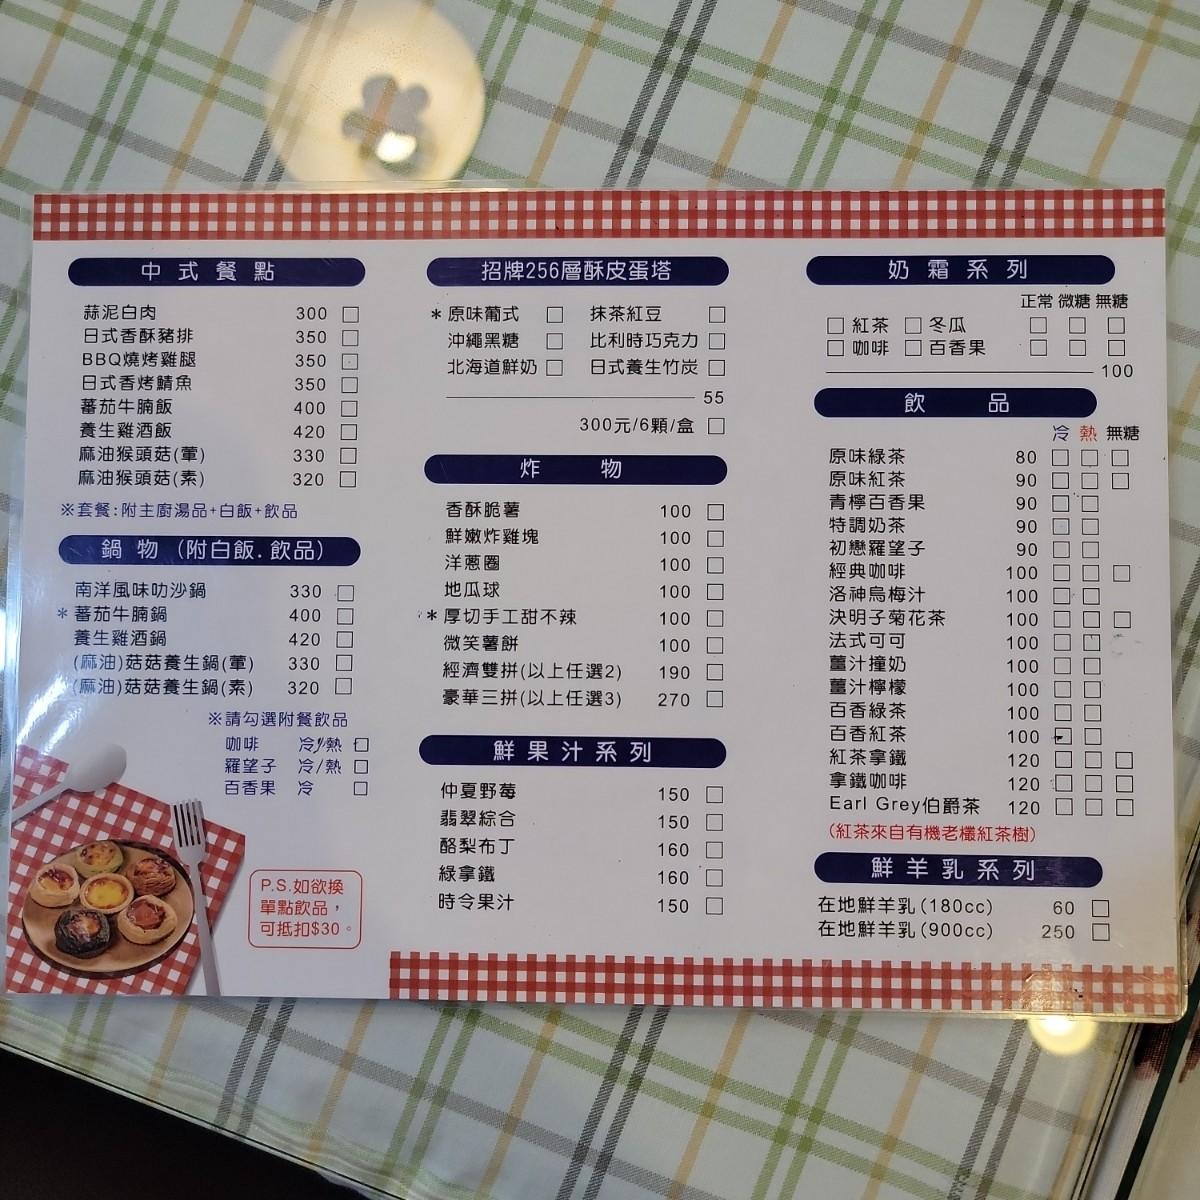 中式餐點
蒜泥白肉 300 □
日式香酥豬排 350 □
BBQ燒烤雞腿 350 □
日式香烤鯖魚 350 □
蕃茄牛腩飯 400 □
養生雞酒飯 420 □
麻油猴頭菇(葷) 330 □
麻油猴頭菇(素) 320 □
※套餐:附主廚湯品+白飯+飲品
鍋物 (附白飯.飲品)
南洋風味叻沙鍋 330 □
*蕃茄牛腩鍋 400 □
養生雞酒鍋 420 □
(麻油)菇菇養生鍋(葷) 330 □
(麻油)菇菇養生鍋(素) 320 □
※請勾選附餐飲品
咖啡 冷/熱 □
羅望子 冷/熱 □
百香果 冷 □
P.S.如欲換
單點飲品，
可抵扣$30。
招牌256層酥皮蛋塔
*原味葡式 □ 抹茶紅豆 □
沖繩黑糖 □ 比利時巧克力 □
北海道鮮奶 □ 日式養生竹炭 □
55
300元/6顆/盒 □
炸物
香酥脆薯 100 □
鮮嫩炸雞塊 100 □
洋蔥圈 100 □
地瓜球 100 □
*厚切手工甜不辣 100 □
微笑薯餅 100 □
經濟雙拼(以上任選2) 190 □
豪華三拼(以上任選3) 270 □
鮮果汁系列
仲夏野莓 150 □
翡翠綜合 150 □
酪梨布丁 160 □
綠拿鐵 160 □
時令果汁 150 □
奶霜系列
正常 微糖 無糖
□ 紅茶 □ 冬瓜 □ □ □
□ 咖啡 □ 百香果 □ □ □
100
飲品
冷 熱 無糖
原味綠茶 80 □ □ □
原味紅茶 90 □ □ □
青檸百香果 90 □ □
特調奶茶 90 □ □
初戀羅望子 90 □ □
經典咖啡 100 □ □ □
洛神烏梅汁 100 □ □
決明子菊花茶 100 □ □ □
法式可可 100 □ □
薑汁撞奶 100 □ □
薑汁檸檬 100 □ □
百香綠茶 100 □ □
百香紅茶 100 □ □
紅茶拿鐵 120 □ □ □
拿鐵咖啡 120 □ □ □
Earl Grey伯爵茶 120 □ □ □
(紅茶來自有機老欉紅茶樹)
鮮羊乳系列
在地鮮羊乳(180cc) 60 □
在地鮮羊乳(900cc) 250 □